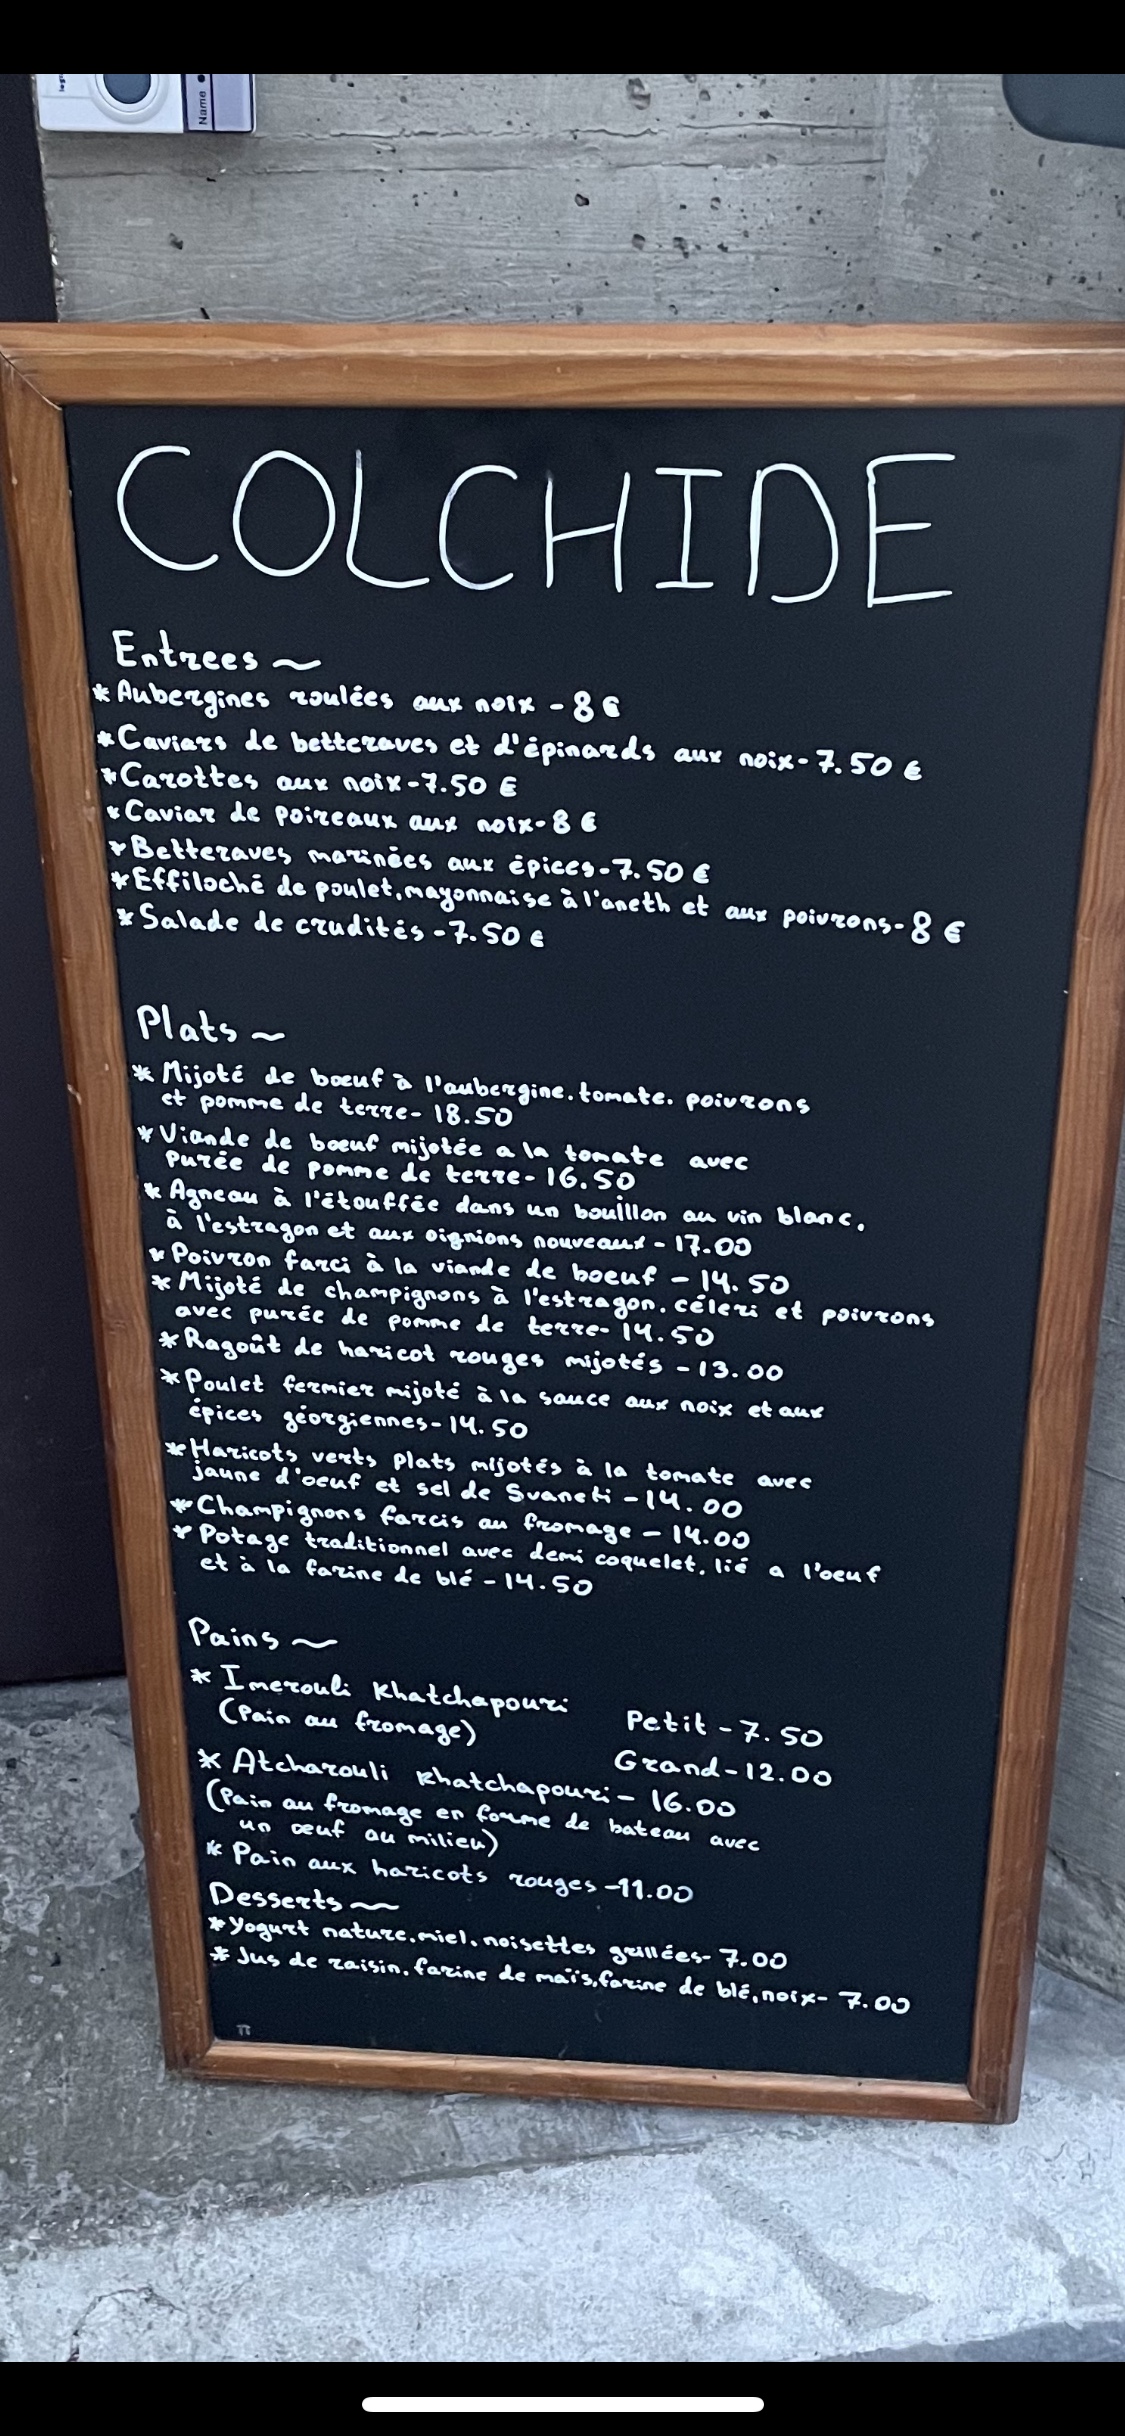 Name
COLCHIDE
Entrees ~
* Aubergines roulées aux noix - 8 €
* Caviars de betteraves et d'épinards aux noix - 7.50 €
* Carottes aux noix - 7.50 €
* Caviar de poireaux aux noix - 8 €
* Betteraves marinées aux épices - 7.50 €
* Effiloché de poulet, mayonnaise à l'aneth et aux poivrons - 8 €
* Salade de crudités - 7.50 €
Plats ~
* Mijoté de bœuf à l'aubergine. tomate. poivrons
et pomme de terre - 18.50
* Viande de bœuf mijotée a la tomate avec
purée de pomme de terre - 16.50
* Agneau à l'étouffée dans un bouillon au vin blanc,
à l'estragon et aux oignions nouveaux - 17.00
* Poivron farci à la viande de boeuf - 14.50
* Mijoté de champignons à l'estragon. céleri et poivrons
avec purée de pomme de terre - 14.50
* Ragoût de haricot rouges mijotés - 13.00
* Poulet fermier mijoté à la sauce aux noix et aux
épices géorgiennes - 14.50
* Haricots verts plats mijotés à la tomate avec
jaune d'oeuf et sel de Svaneti - 14.00
* Champignons farcis au fromage - 14.00
* Potage traditionnel avec demi coquelet, lié a l'oeuf
et à la farine de blé - 14.50
Pains ~
* Imerouli Khatchapouri
(Pain au fromage)
Petit - 7.50
Grand - 12.00
* Atcharouli Khatchapouri - 16.00
(Pain au fromage en forme de bateau avec
un œuf au milieu)
* Pain aux haricots rouges - 11.00
Desserts ~
* Yogurt nature, miel, noisettes grillées - 7.00
* Jus de raisin. farine de maïs, farine de blé, noix - 7.00